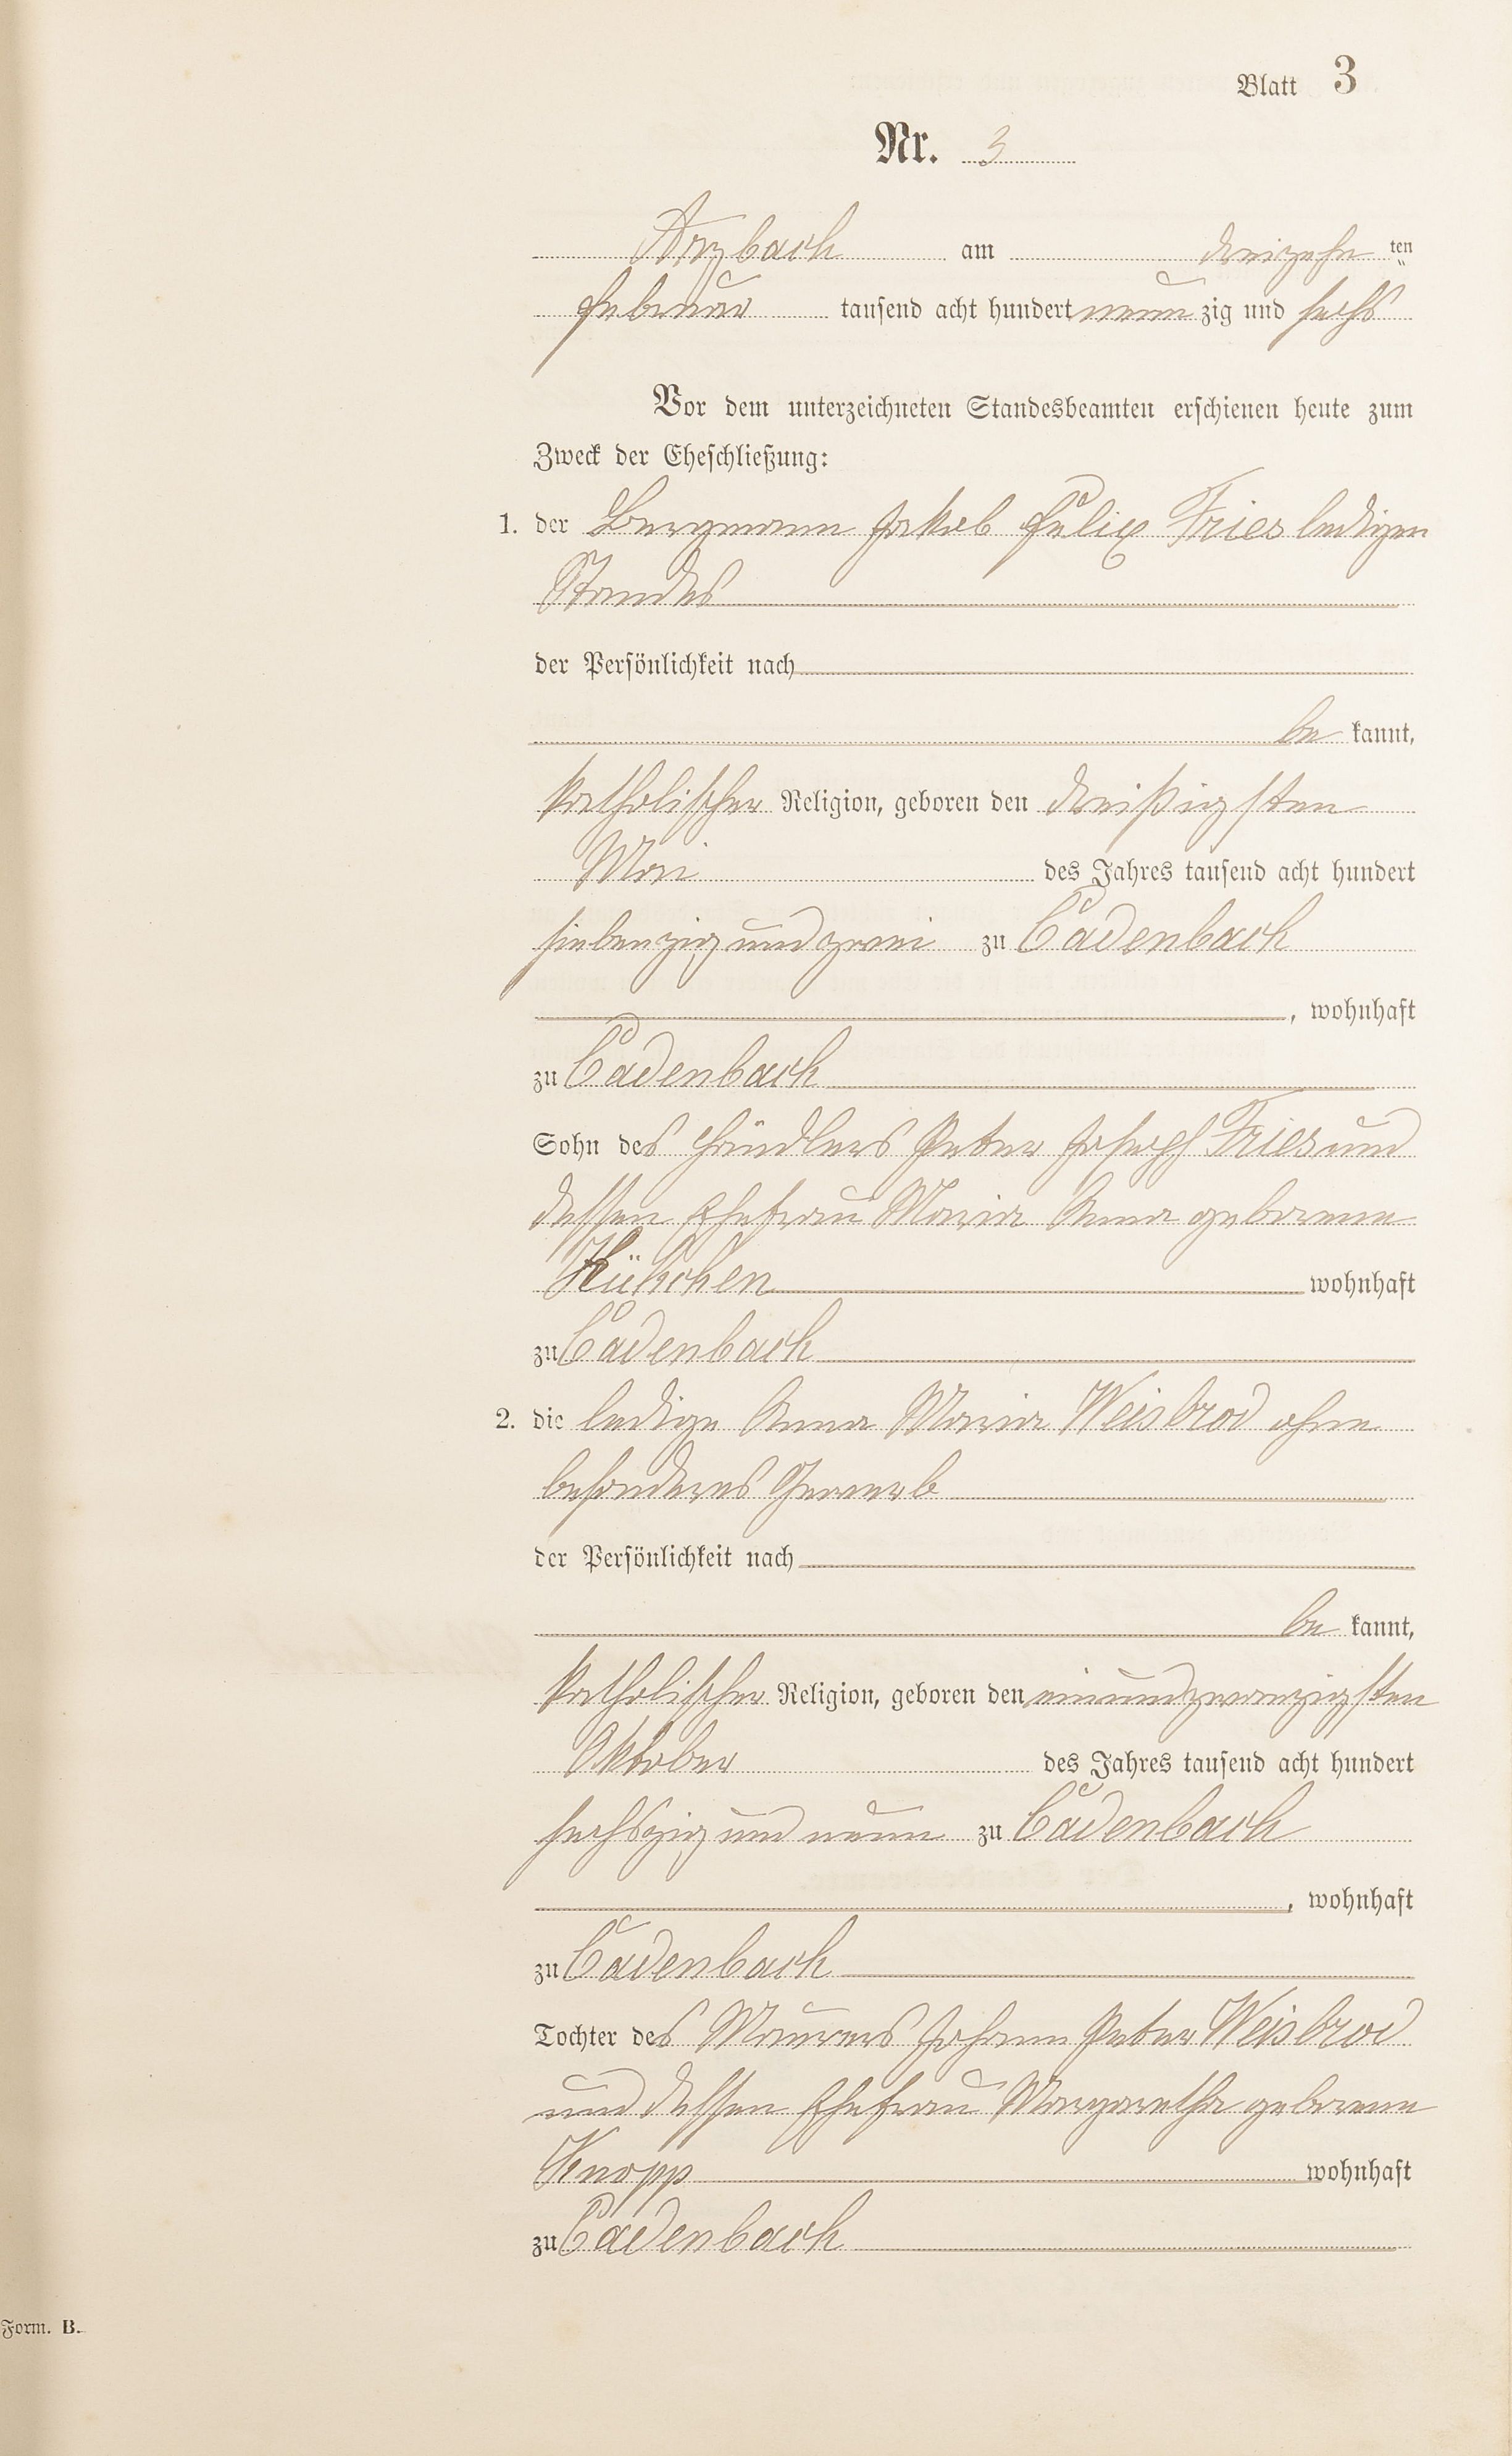 Blatt 3
Nr. 3
Arzbach am dreizehn ten
Februar tausend acht hundert neun zig und sechs
Vor dem unterzeichneten Standesbeamten erschienen heute zum
Zweck der Eheschließung:
1. der Bergmann Jakob Felix Fries ledigen
Standes
der Persönlichkeit nach
be kannt,
katholischer Religion, geboren den dreißigsten
Mai des Jahres tausend acht hundert
siebenzig und zwei zu Cadenbach
, wohnhaft
zu Cadenbach
Sohn des Händlers Peter Joseph Fries und
dessen Ehefrau Maria Anna geborene
wohnhaft
zu Cadenbach
2. die ledige Anna Maria Weisbrod ohne
besonderes Gewerb
der Persönlichkeit nach
be kannt,
katholischer Religion, geboren den einundzwanzigsten
Oktober des Jahres tausend acht hundert
sechszig und neun zu Cadenbach
, wohnhaft
zu Cadenbach
Tochter des Maurers Johann Peter Weisbrod
und dessen Ehefrau Margaretha geborene
Knopp wohnhaft
zu Cadenbach
Form. B.